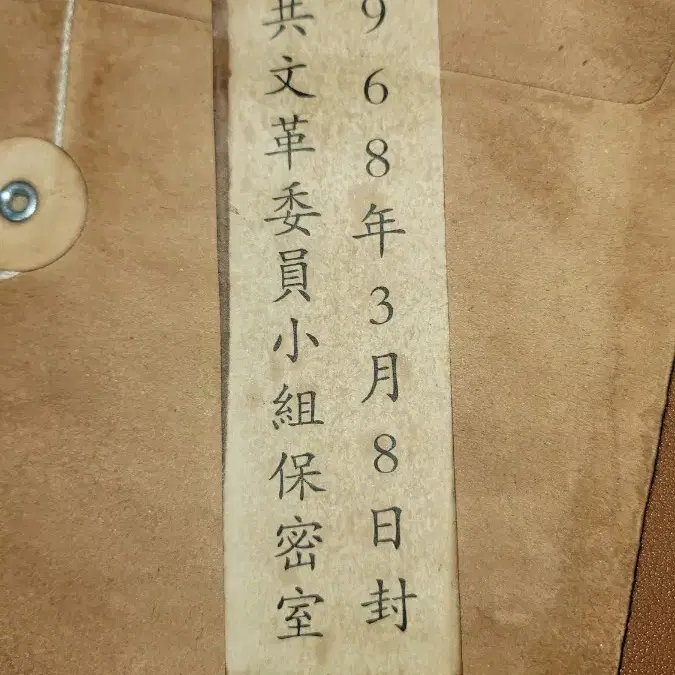 968年3月8日封
共文革委員小組保密室